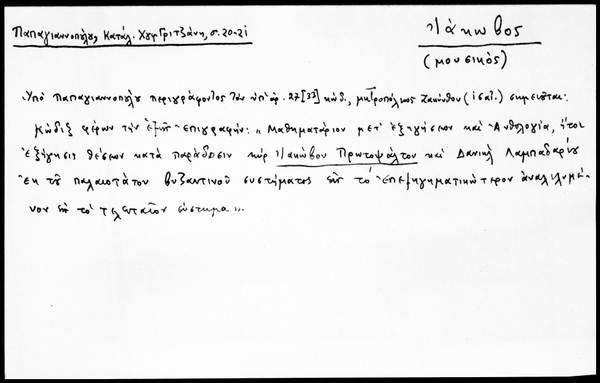 Παπαγιαννοπούλου, Κατάλ. Χφ Γριτζάνη, σ. 20-21
Ἰάκωβος
(μουσικός)
Ὑπὸ Παπαγιαννοπούλου περιγράφοντος τὸν ὑπ' ἀρ. 27[37] κώδ. μητροπόλεως Ζακύνθου ( ) σημειοῦται:
Κώδιξ φέρων τὴν ἑξῆς ἐπιγραφήν: "Μαθηματάριον μετ' ἐξηγήσεων καὶ Ἀνθολογία, ἤτοι
ἐξήγησις θέσεων κατὰ παράδοσιν κὺρ Ἰακώβου Πρωτοψάλτου καὶ Δανιὴλ Λαμπαδαρίου
ἐκ τοῦ παλαιοτάτου βυζαντινοῦ συστήματος εἰς τὸ ἐπεξηγηματικώτερον ἀναλελυμέ-
νον εἰς τὸ τελευταῖον σύστημα".